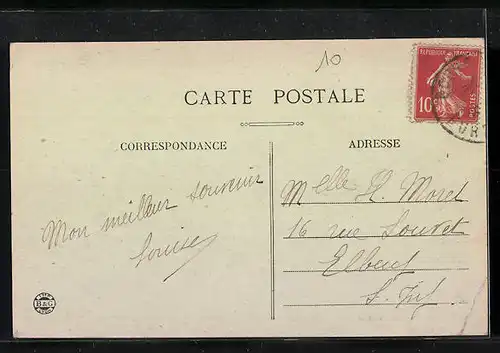 10
RÉPUBLIQUE FRANÇAISE
10 POSTES
CARTE POSTALE
CORRESPONDANCE
ADRESSE
Mlle H. Morel
Mon meilleur souvenir
16 rue Louvet
Louise
Elbeuf
S. Inf
B&G